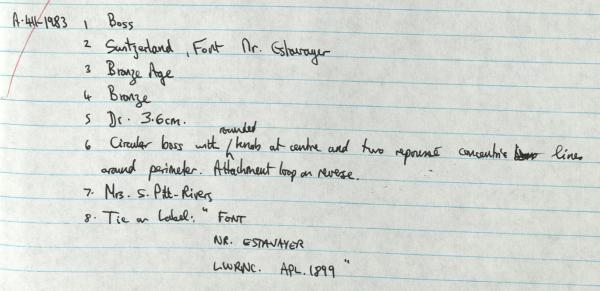 A.411-1983 1 Boss
2 Switzerland, Font Nr. Estavayer
3 Bronze Age
4 Bronze
5 Dr. 3.6cm.
rounded
6 Circular boss with knob at centre and two repoussé concentric lines
around perimeter. Attachment loop on reverse.
7. Mrs. S. Pitt-Rivers
8. Tie on Label: " FONT
NR. ESTAVAYER
LWRNC. APL. 1899 "